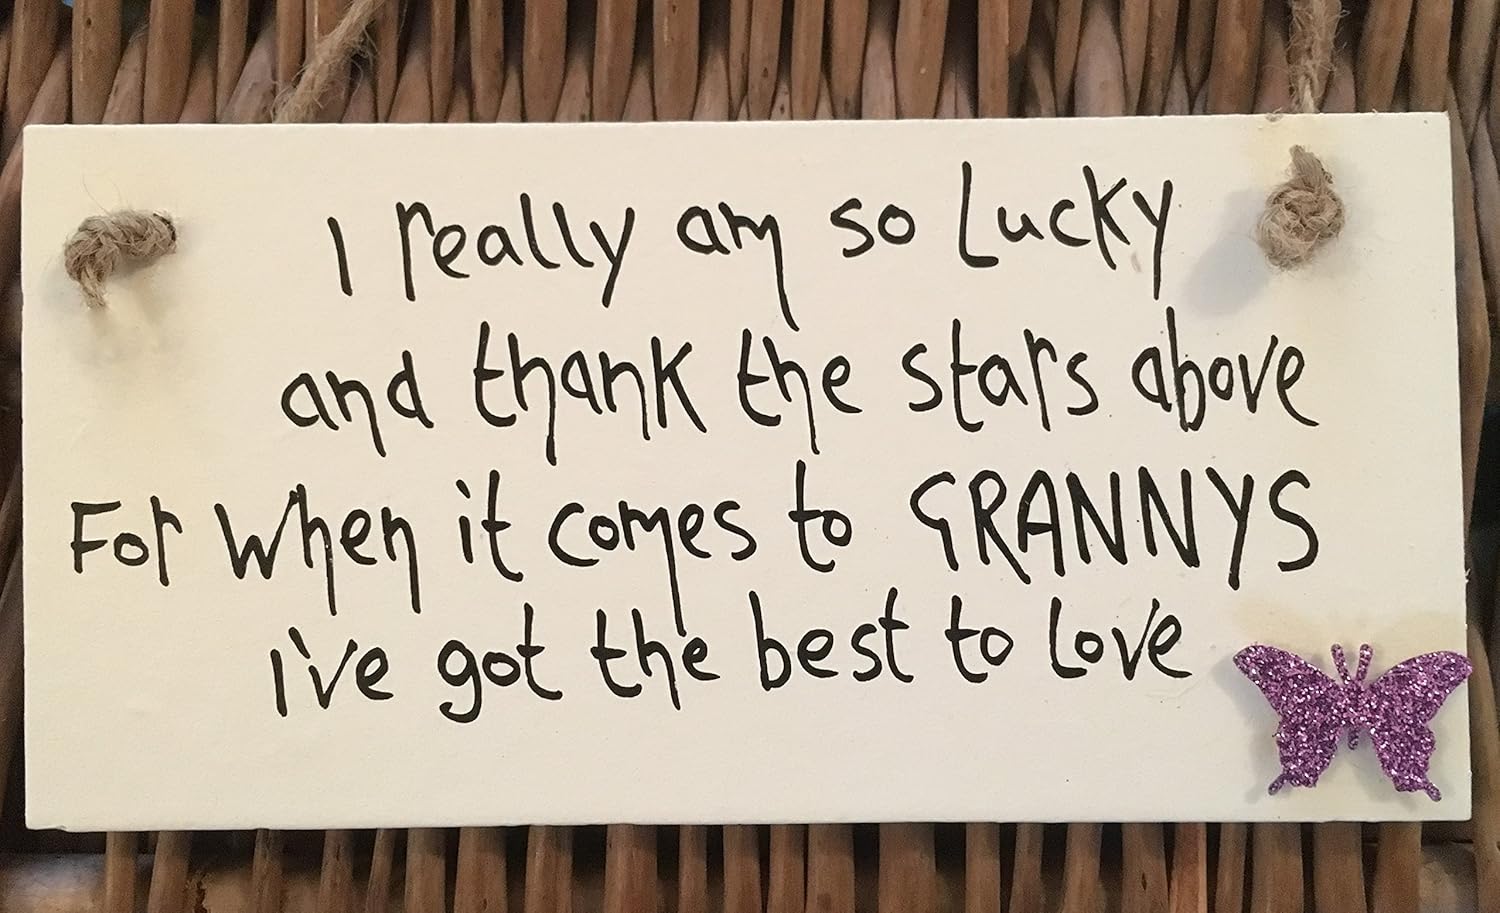 I really am so Lucky
and thank the stars above
For when it comes to GRANNYS
I've got the best to Love